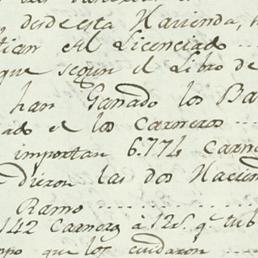 desde esta Hacienda,
tian el Licenciado
que segun el Libro de
han Ganado los Ba
ado el los Carneros
importan 6.774 Carne
dieron las dos Hacien
Ramo
142 Carneros à 12 r. q. tub
po que los cuidaron